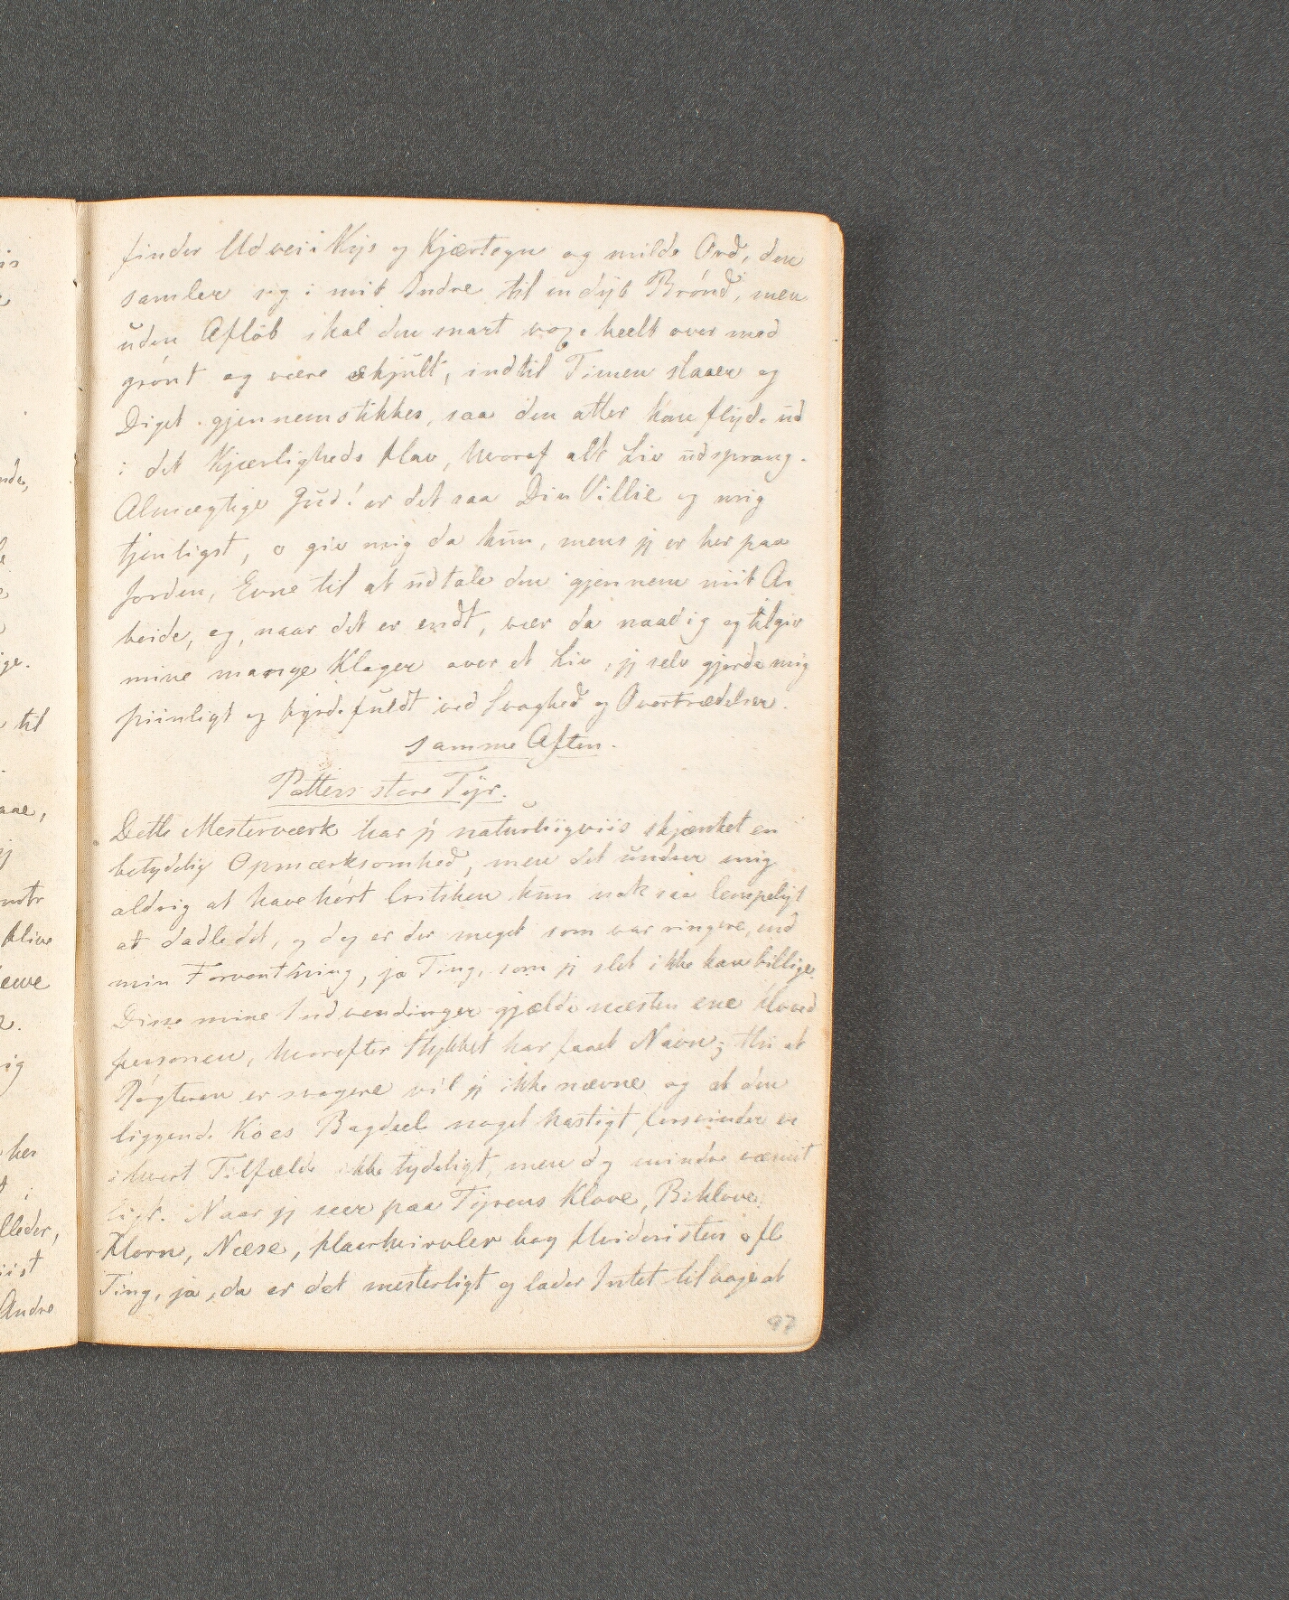 finder Udvei i Kys og Kjærtegn og milde Ord, den
samler sig i mit Indre til en dyb Brønd, men
uden Afløb skal den snart voxe heelt over med
grønt og være skjult, indtil Timen slaaer og
Diget gjennemstikkes, saa den atter kan flyde ud
i det Kjærligheds Hav, hvoraf alt Liv udsprang.
Almægtige Gud! er det saa Din Villie og mig
tjenligst, o giv mig da kun, mens jg er her paa
Jorden, Evne til at udtale den igjennem mit Ar
beide, og, naar det er endt, vær da naadig og tilgiv
mine mange Klager over et Liv, jg selv gjorde mig
piinligt og byrdefuldt ved Svaghed og Overtrædelser.
samme Aften.
Potters store Tyr.
Dette Mesterværk har jg naturligviis skjænket en
betydelig Opmærksomhed, men det undrer mig
aldrig at have hørt Critiken kun nok saa lempeligt
at dadle det, og dog er der meget som var ringere, end
min Forventning, ja Ting, som jg slet ikke kan billige.
Disse mine Indvendinger gjælde næsten ene Hoved
personen, hvorefter Stykket har faaet Navn; thi at
Røgteren er svagere vil jg ikke nævne og at den
liggende Koes Bagdeel noget hastigt forsvinder er
i hvert Tilfælde ikke tydeligt, men dog mindre væsent
ligt. Naar jg seer paa Tyrens Klove, Biklove,
Horn, Næse, Haarhvirvler bag Hvideristen o fl
Ting, ja, da er det mesterligt og lader Intet tilbage at
97
til
Andre